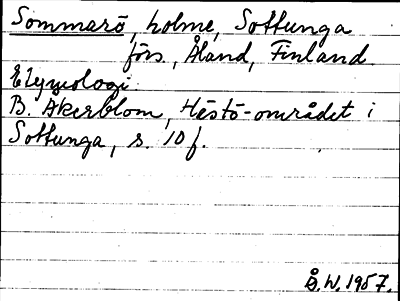 Sommarö, holme, Sottunga
förs., Åland, Finland
Etymologi
B. Åkerblom, Hästö-området i
Sottunga, s. 10 f.
Å.W. 1957.